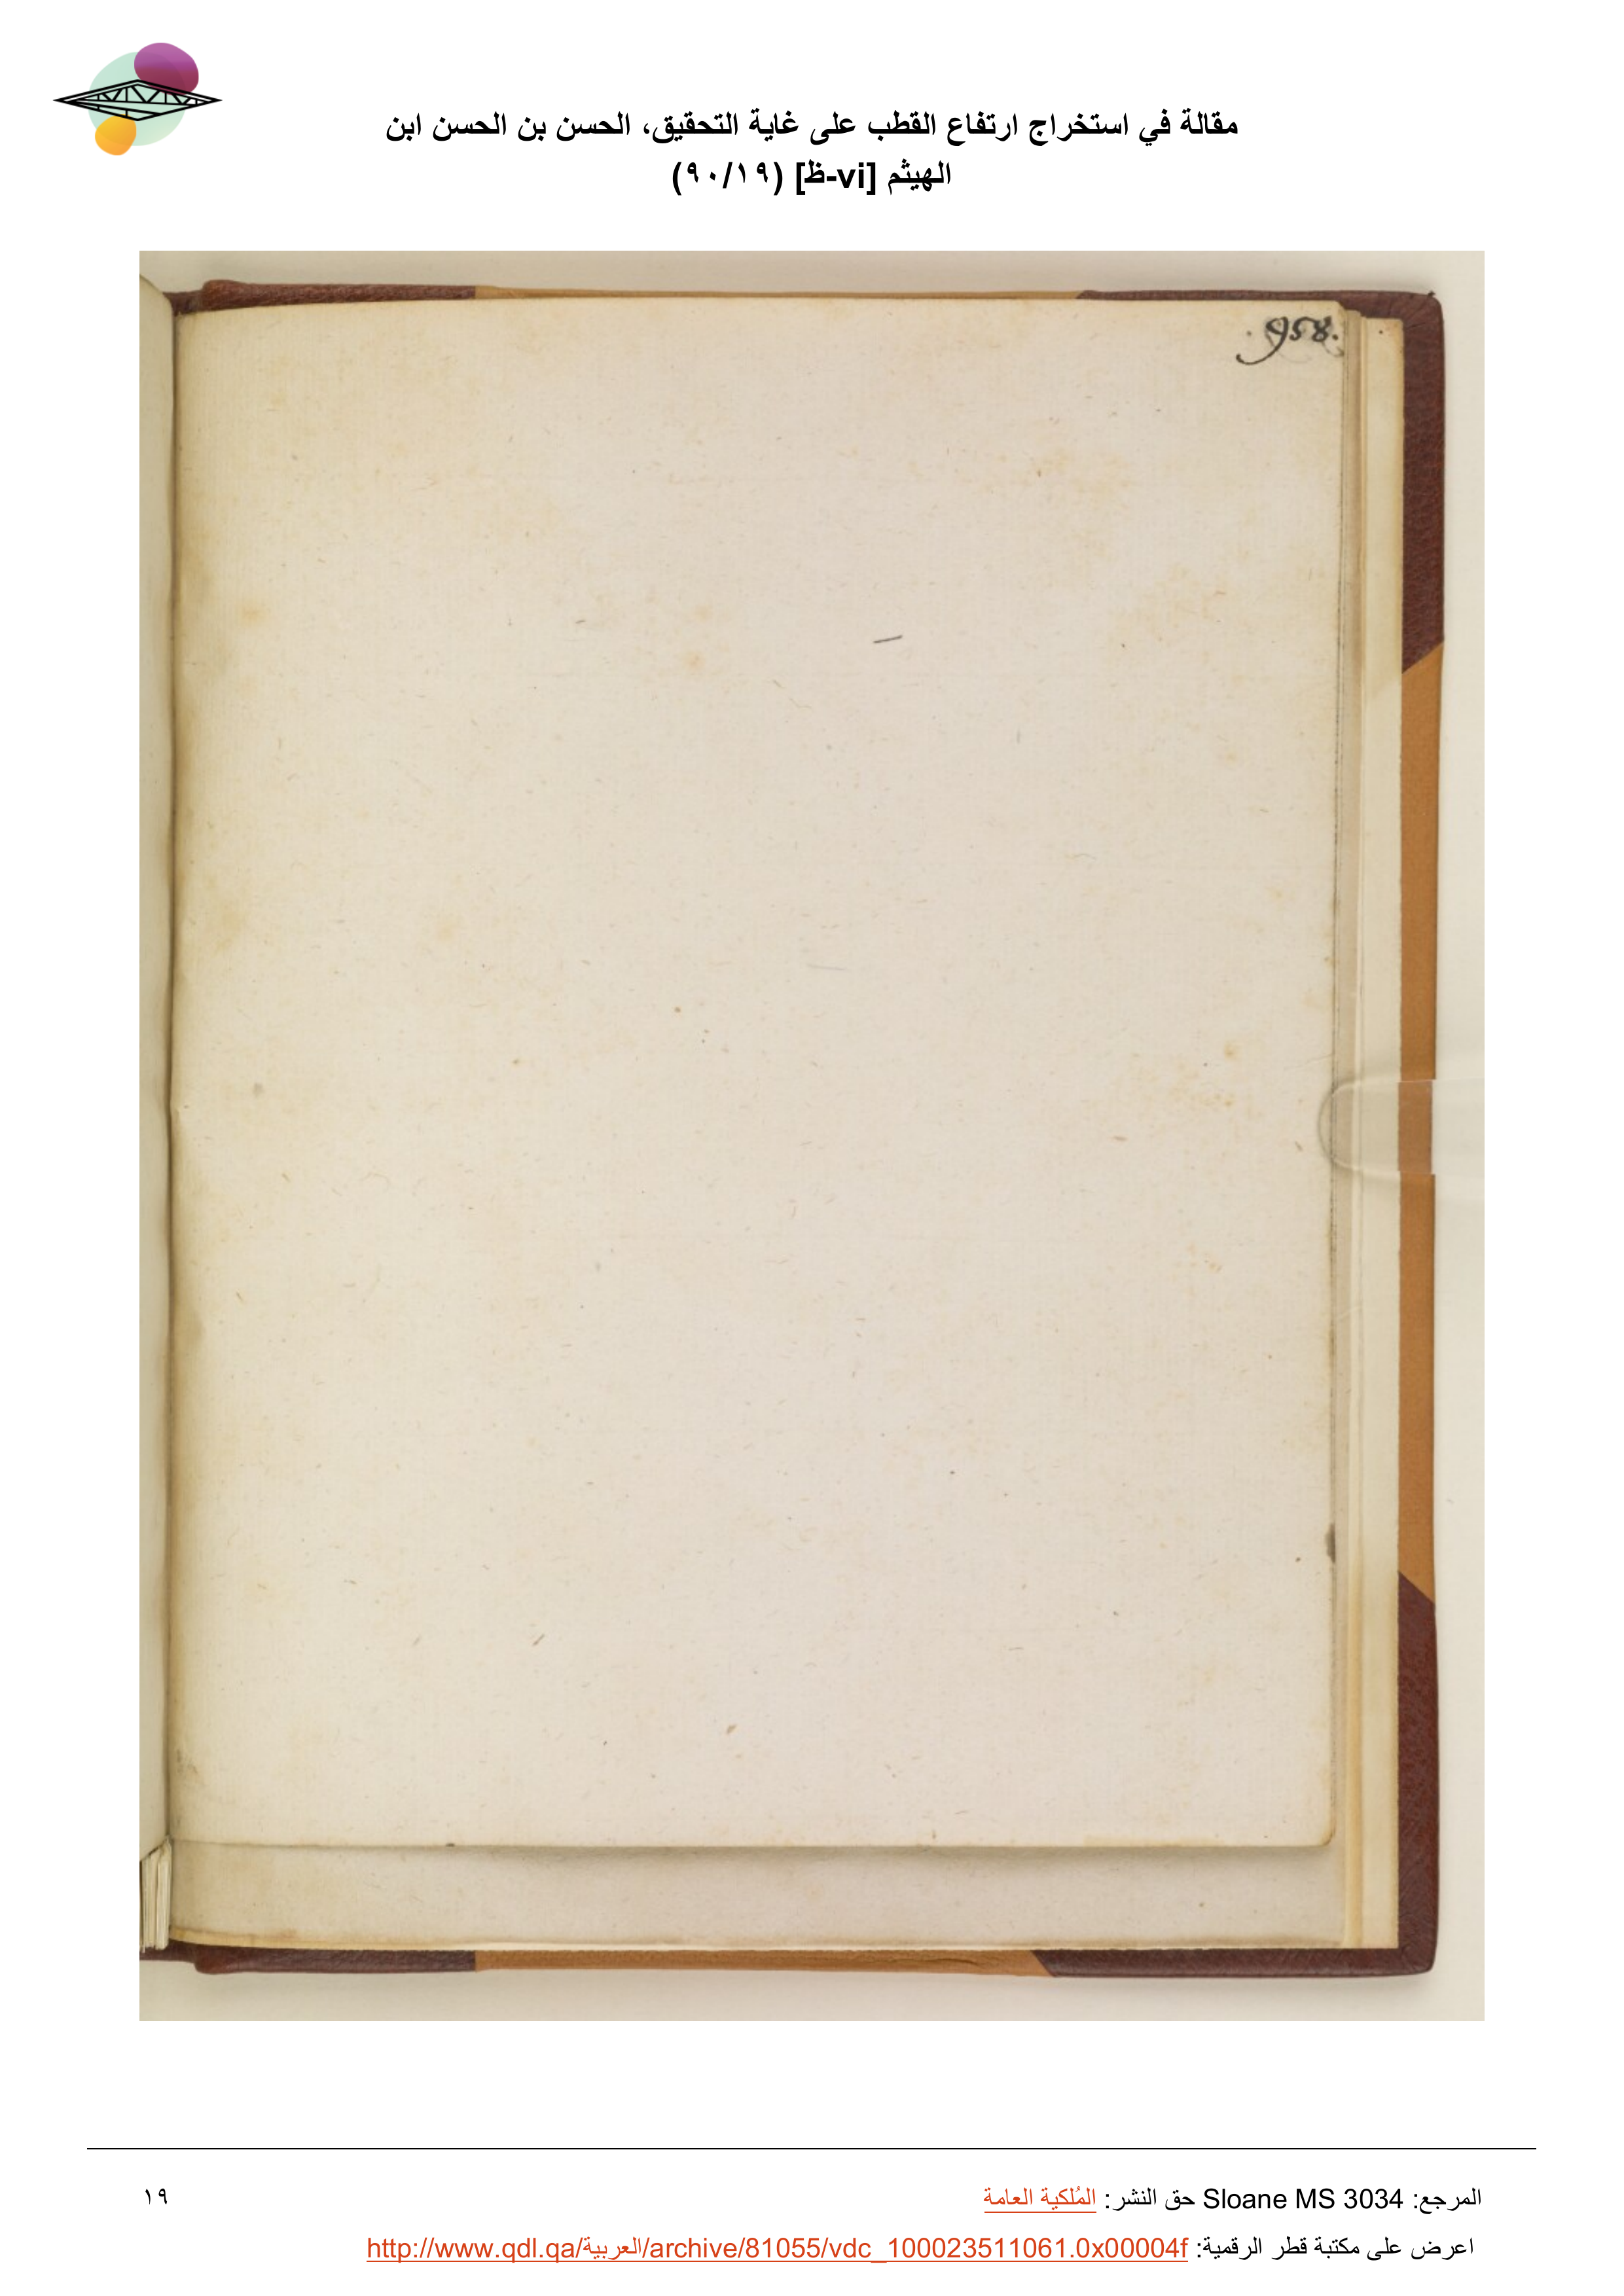 مقالة في استخراج ارتفاع القطب على غاية التحقيق، الحسن بن الحسن ابن
الهيثم [vi-ظ] (١٩/٩٠)
.958.
المرجع: Sloane MS 3034 حق النشر: المُلكية العامة
١٩
اعرض على مكتبة قطر الرقمية: http://www.qdl.qa/العربية/archive/81055/vdc_100023511061.0x00004f